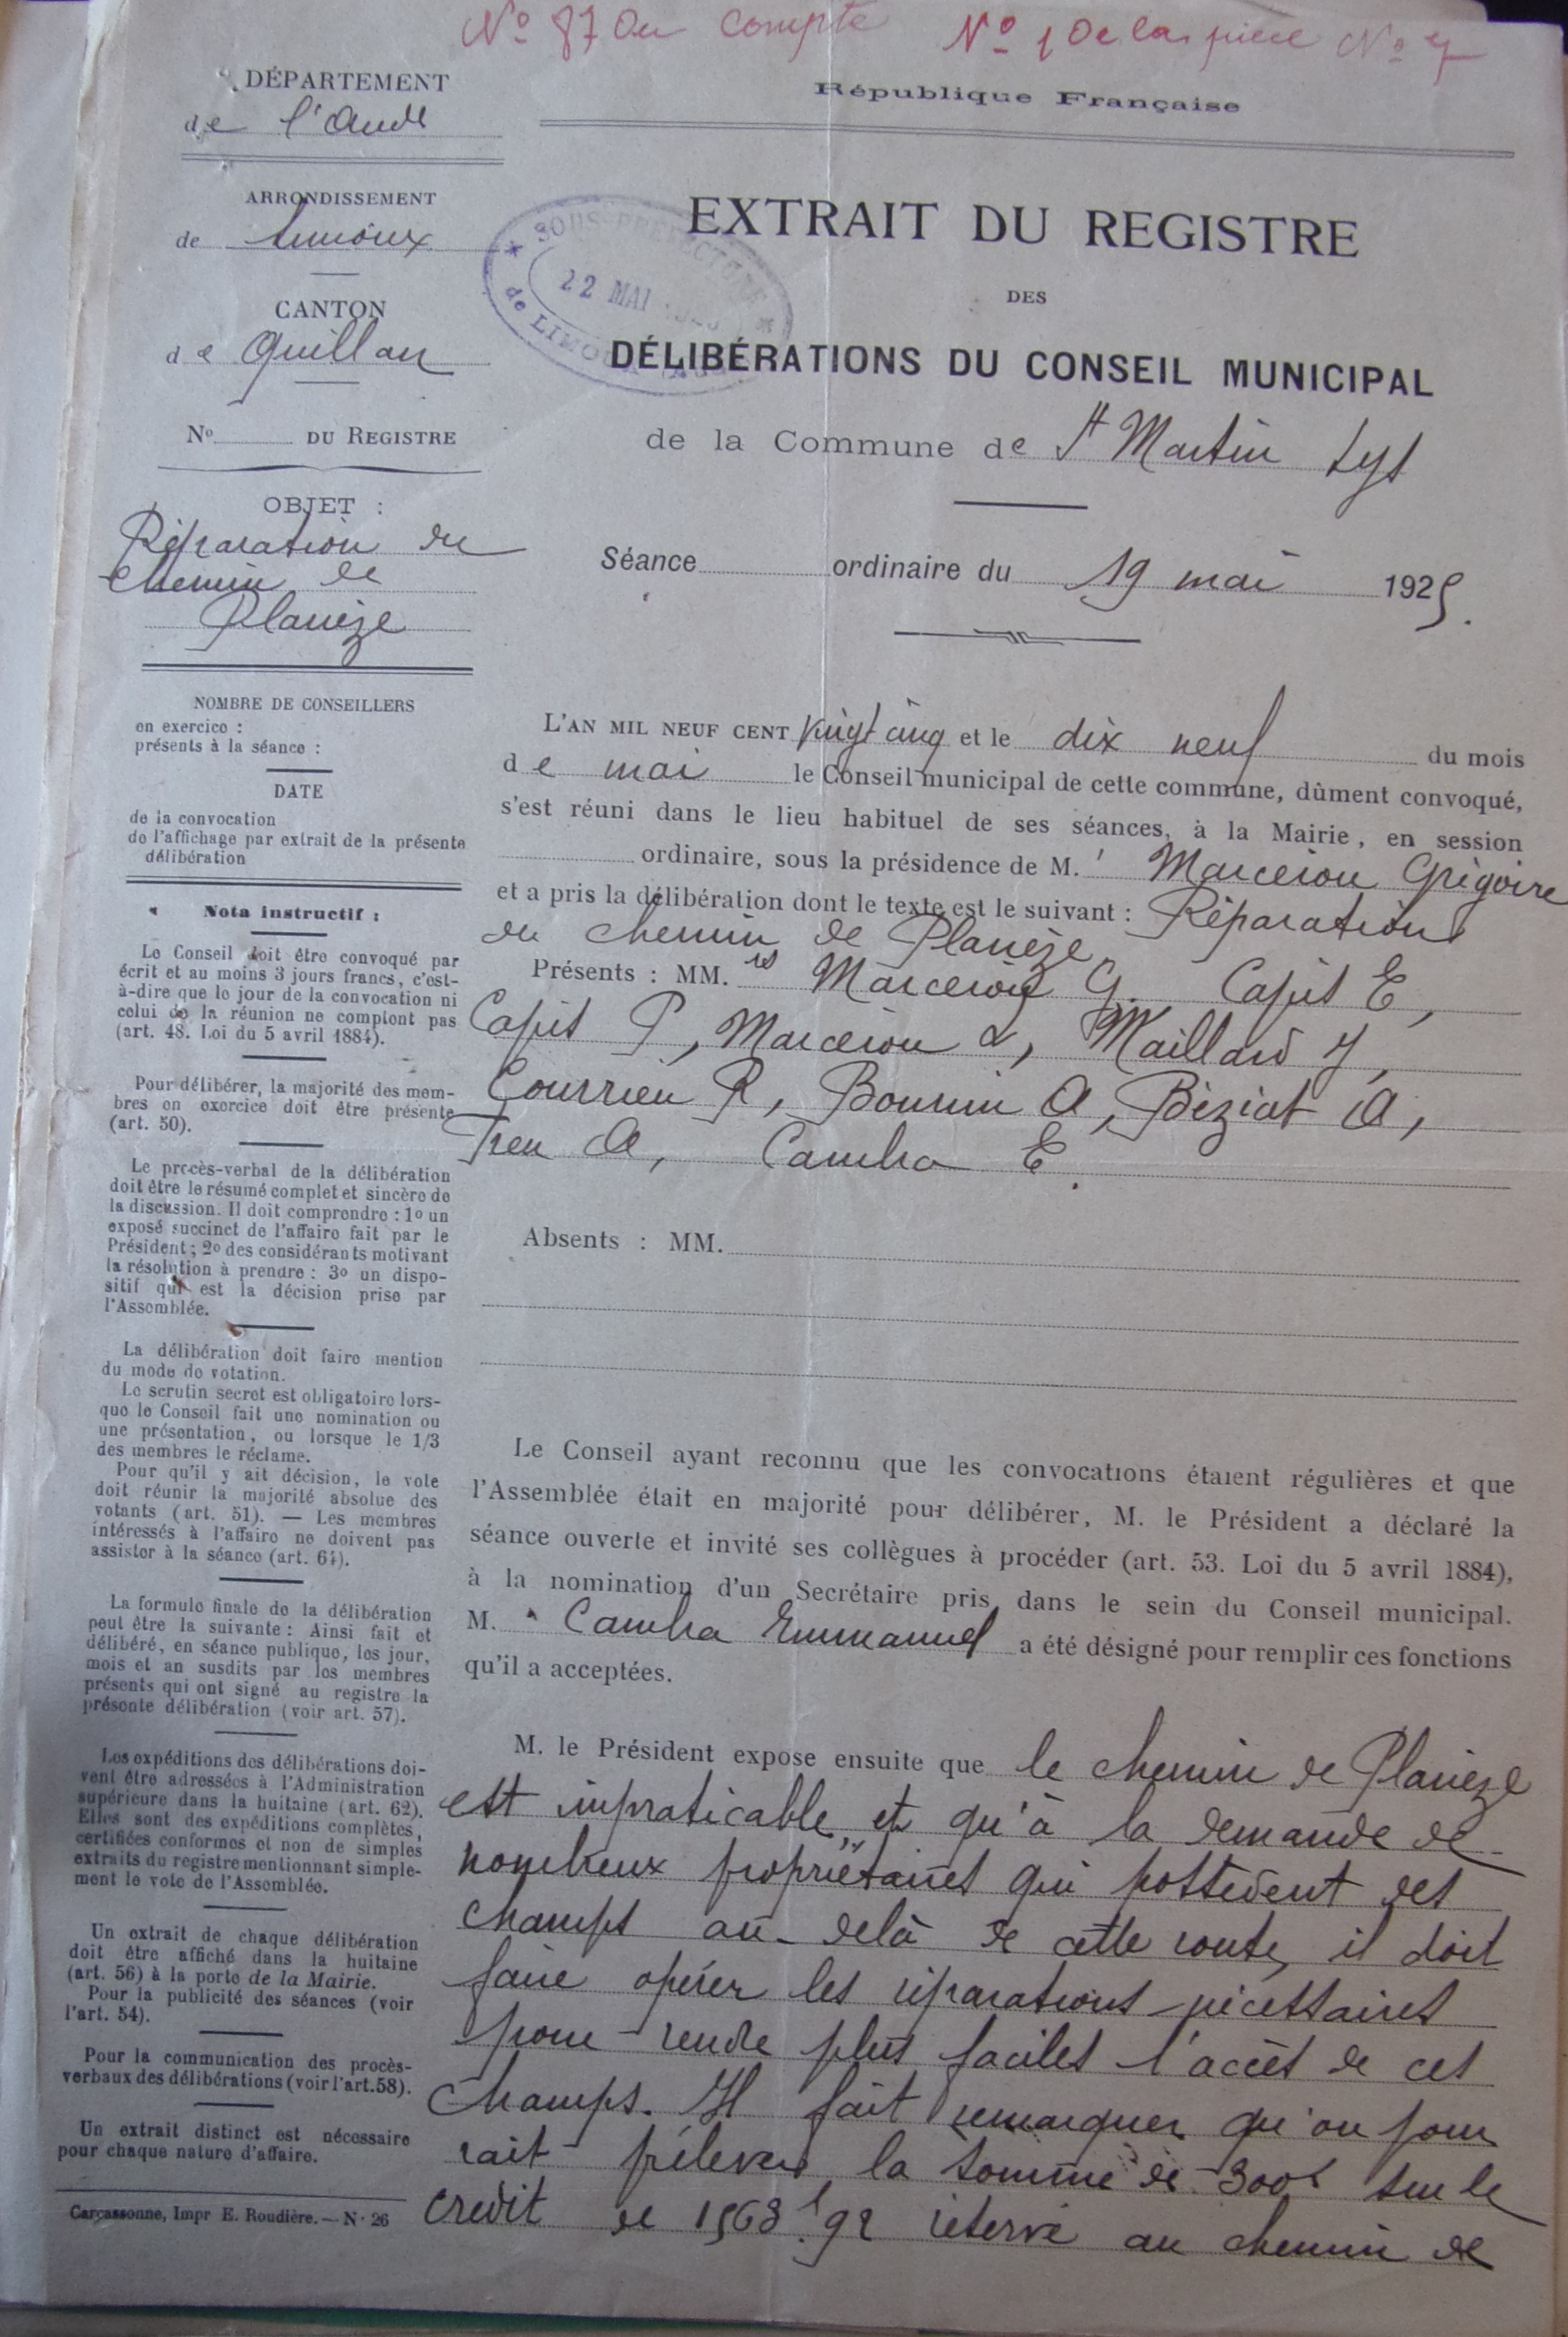 Nº 87 Du Compte Nº 1 De la pièce Nº 7
DÉPARTEMENT
de l'Aude
ARRONDISSEMENT
de Limoux
CANTON
de Quillan
Nº DU REGISTRE
OBJET :
Réparation du
chemin de
Planèze
NOMBRE DE CONSEILLERS
en exercice :
présents à la séance :
DATE
de la convocation
de l'affichage par extrait de la présente
délibération
Nota instructif :
Le Conseil doit être convoqué par
écrit et au moins 3 jours francs, c'est-
à-dire que le jour de la convocation ni
celui de la réunion ne comptent pas
(art. 48. Loi du 5 avril 1884).
Pour délibérer, la majorité des mem-
bres en exercice doit être présente
(art. 50).
Le procès-verbal de la délibération
doit être le résumé complet et sincère de
la discussion. Il doit comprendre : 1º un
exposé succinct de l'affaire fait par le
Président ; 2º des considérants motivant
la résolution à prendre : 3º un dispo-
sitif qui est la décision prise par
l'Assemblée.
La délibération doit faire mention
du mode de votation.
Le scrutin secret est obligatoire lors-
que le Conseil fait une nomination ou
une présentation, ou lorsque le 1/3
des membres le réclame.
Pour qu'il y ait décision, le vote
doit réunir la majorité absolue des
votants (art. 51). — Les membres
intéressés à l'affaire ne doivent pas
assister à la séance (art. 64).
La formule finale de la délibération
peut être la suivante : Ainsi fait et
délibéré, en séance publique, les jour,
mois et an susdits par les membres
présents qui ont signé au registre la
présente délibération (voir art. 57).
Les expéditions des délibérations doi-
vent être adressées à l'Administration
supérieure dans la huitaine (art. 62).
Elles sont des expéditions complètes,
certifiées conformes et non de simples
extraits du registre mentionnant simple-
ment le vote de l'Assemblée.
Un extrait de chaque délibération
doit être affiché dans la huitaine
(art. 56) à la porte de la Mairie.
Pour la publicité des séances (voir
l'art. 54).
Pour la communication des procès-
verbaux des délibérations (voir l'art.58).
Un extrait distinct est nécessaire
pour chaque nature d'affaire.
Carcassonne, Impr E. Roudière. — N· 26
République Française
SOUS-PRÉFECTURE
22 MAI
de LIMOUX
EXTRAIT DU REGISTRE
DES
DÉLIBÉRATIONS DU CONSEIL MUNICIPAL
de la Commune de St Martin Lys
Séance ordinaire du 19 mai 1925.
L'AN MIL NEUF CENT vingt cinq et le dix neuf du mois
de mai le Conseil municipal de cette commune, dûment convoqué,
s'est réuni dans le lieu habituel de ses séances, à la Mairie, en session
ordinaire, sous la présidence de M. Marceron Grégoire
et a pris la délibération dont le texte est le suivant : Réparation
du chemin de Planèze
Présents : MM.rs Marceron G. Capit E,
Capit P, Marceron L, Maillard J,
Courrieu R, Bournin A, Béziat A,
Treu A, Cambra E.
Absents : MM.
Le Conseil ayant reconnu que les convocations étaient régulières et que
l'Assemblée était en majorité pour délibérer, M. le Président a déclaré la
séance ouverte et invité ses collègues à procéder (art. 53. Loi du 5 avril 1884),
à la nomination d'un Secrétaire pris dans le sein du Conseil municipal.
M. Cambra Emmanuel a été désigné pour remplir ces fonctions
qu'il a acceptées.
M. le Président expose ensuite que le chemin de Planèze
est impraticable et qu'à la demande de
nombreux propriétaires qui possèdent des
champs au-delà de cette route, il doit
faire opérer les réparations nécessaires
pour rendre plus faciles l'accès de ces
champs. Il fait remarquer qu'on pour
rait prélever la somme de 300f sur le
crédit de 1568f.92 réservé au chemin de